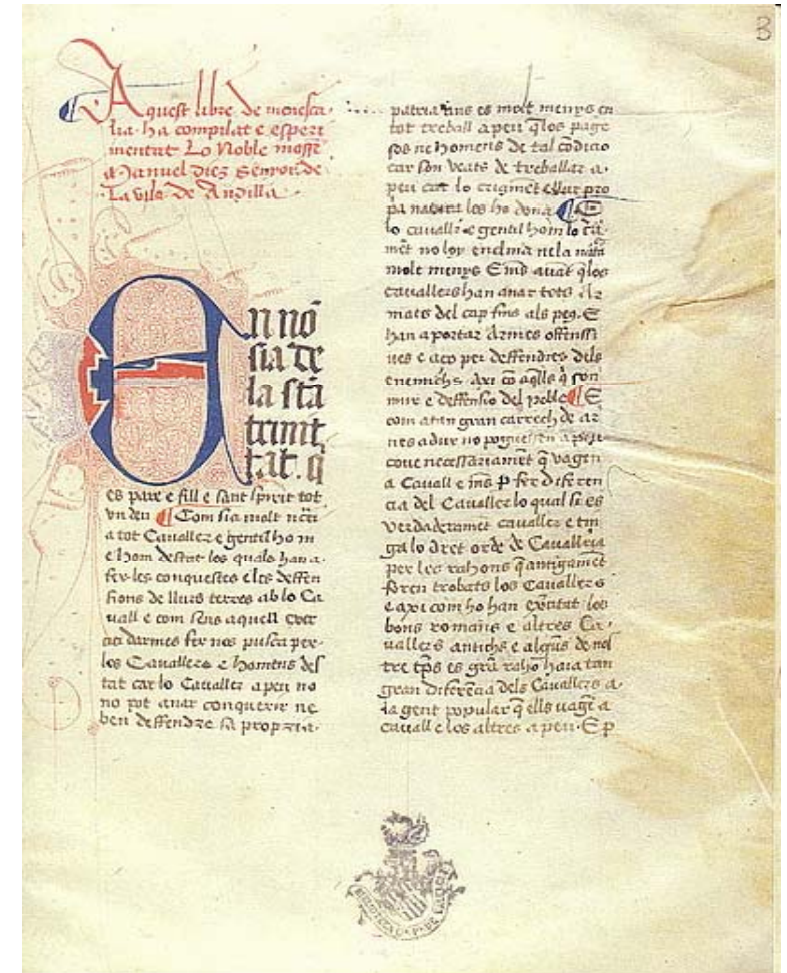 B
Aquest libre de menesca
lia · ha compilat e esperi
mentat Lo Noble mossē
Manuel diez Senyor de
La vila de Andilla ·
En nō
sia de
la stā
trinit
tat. q̄
es pare e fill e sant spirit tot
vn deu ¶ Com sia molt
a tot Cavaller e gentil hom
e hom destat los quals han a
fer les conquestes e les deffen
sions de llurs terres ab lo Ca
vall e com sens aquell exer
cici darmes fer nos pusca per
los Cavallers e homens des
tat car lo Cavaller a peu no
no pot anar conquerir ne
ben deffendre sa propria
patria ans es molt menys en
tot treball a peu q̄ los page
sos ne homens de tal cōdicio
car son veats de treballar a
peu car lo ellur pro
pa natura los ho dona ¶ E
lo cavaller e gentil hom lo
no loy enclina ne la
molt menys E mes auāt q̄ los
cavallers han anar tots Ar
mats del cap fins als peus. E
han a portar Armes offensi
ues e aço per deffendres dels
enemichs Axi cō aq̄lls q̄ son
mur e deffensio del poble ¶ E
com a tan gran carrech de ar
nes a dur no poguessen a peu
coue necessariamēt q̄ vagen
a Cauall e mes ꝑ fer diferen
cia del Cauallez lo qual si es
verdaderamēt cavaller e tin
ga lo dret orde de Cavalleria
per les rahons q̄ antigamēt
foren trobats los Cavallers
e axi com ho han los
bons romans e altres Ca
vallers antichs e algūs de nos
tre tp̄s es grā raho haia tan
gran diferēcia dels Cavallers a
la gent popular q̄ ells vagē a
cauall e los altres a peu · E ꝑ